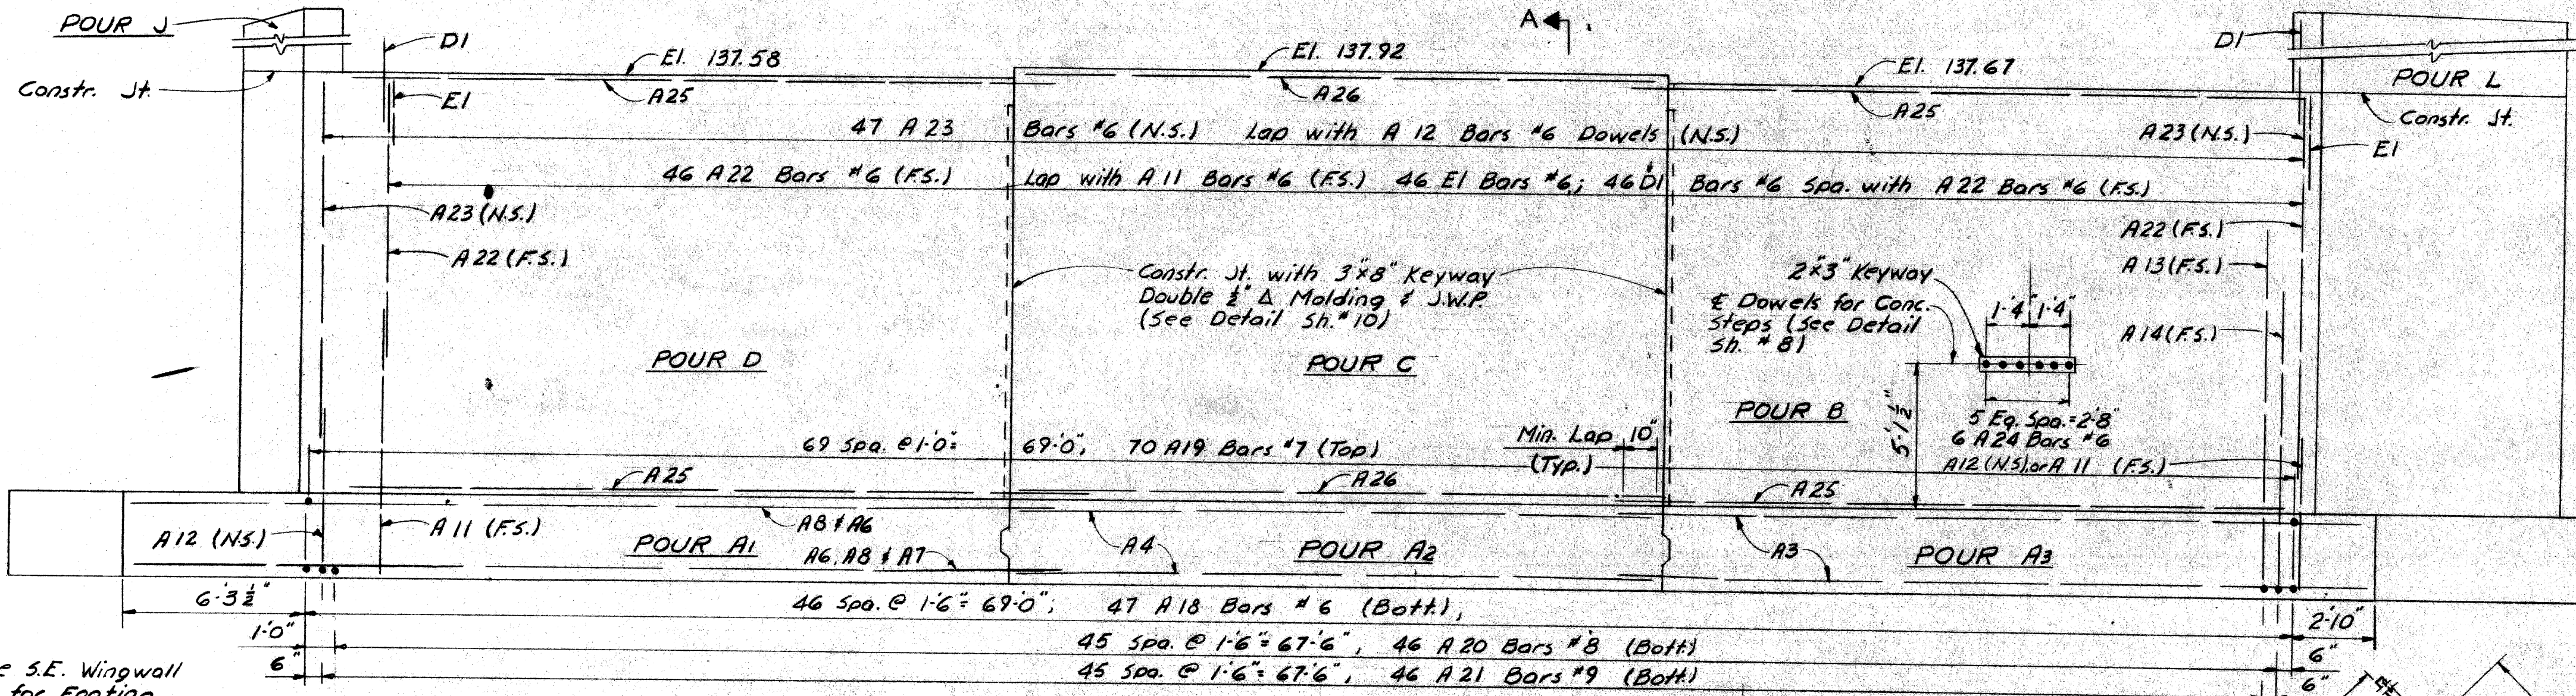 POUR J
Constr. Jt.
D1
E1
El. 137.58
A25
A
El. 137.92
A26
El. 137.67
A25
D1
POUR L
Constr. Jt.
E1
47 A23 Bars #6 (N.S.) Lap with A12 Bars #6 Dowels (N.S.)
A23 (N.S.)
46 A22 Bars #6 (F.S.) Lap with A11 Bars #6 (F.S.) 46 E1 Bars #6; 46 D1 Bars #6 Spa. with A22 Bars #6 (F.S.)
A23 (N.S.)
A22 (F.S.)
A22 (F.S.)
A13 (F.S.)
A14 (F.S.)
Constr. Jt. with 3"x8" Keyway
Double ½" Δ Molding & J.W.P.
(See Detail Sh. #10)
2"x3" Keyway
℄ Dowels for Conc.
Steps (See Detail
Sh. #8)
1'-4" 1'-4"
5'-1½"
5 Eq. Spa. = 2'-8"
6 A24 Bars #6
A12 (N.S.) or A11 (F.S.)
POUR D
POUR C
POUR B
69 Spa. @ 1'-0" = 69'-0", 70 A19 Bars #7 (Top)
Min. Lap 10"
(Typ.)
A25
A26
A25
A12 (N.S.)
A11 (F.S.)
A8 & A6
POUR A1
A6, A8 & A7
A4
POUR A2
A3
POUR A3
6'-3½"
46 Spa. @ 1'-6" = 69'-0"; 47 A18 Bars #6 (Bott.),
2'-10"
1'-0"
45 Spa. @ 1'-6" = 67'-6", 46 A20 Bars #8 (Bott.)
6"
6"
45 Spa. @ 1'-6" = 67'-6", 46 A21 Bars #9 (Bott.)
6"
S.E. Wingwall
for Footing